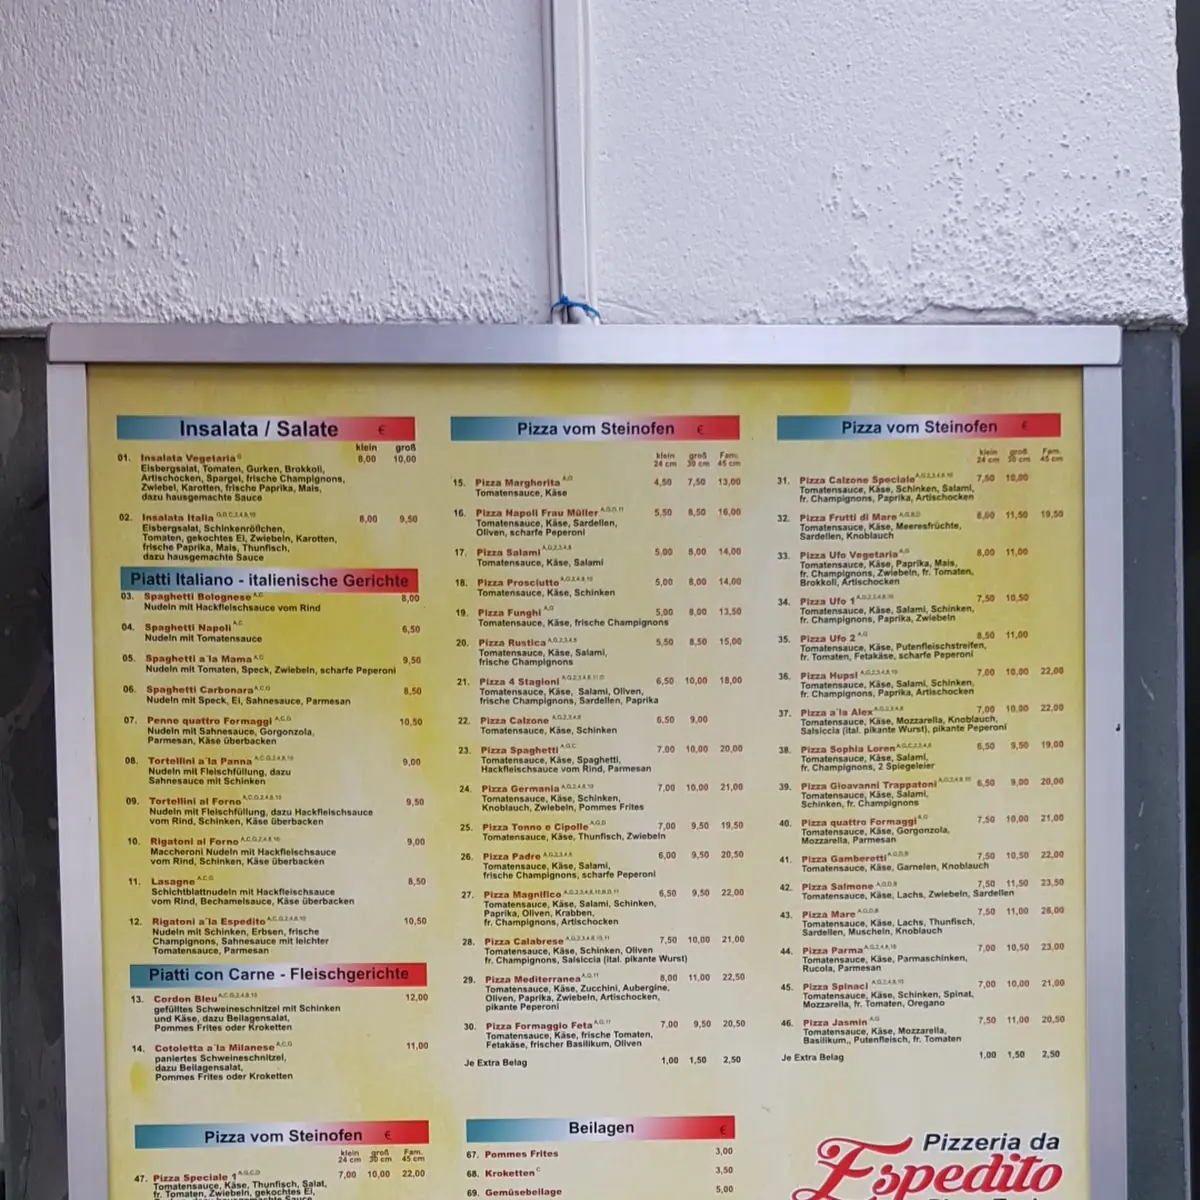 Insalata / Salate €
klein groß
01. Insalata Vegetaria 8,00 10,00
Eisbergsalat, Tomaten, Gurken, Brokkoli,
Artischocken, Spargel, frische Champignons,
Zwiebel, Karotten, frische Paprika, Mais,
dazu hausgemachte Sauce
02. Insalata Italia 8,00 9,50
Eisbergsalat, Schinkenrößchen,
Tomaten, gekochtes Ei, Zwiebeln, Karotten,
frische Paprika, Mais, Thunfisch,
dazu hausgemachte Sauce
Piatti Italiano - italienische Gerichte
03. Spaghetti Bolognese A,C 8,00
Nudeln mit Hackfleischsauce vom Rind
04. Spaghetti Napoli A,C 6,50
Nudeln mit Tomatensauce
05. Spaghetti a´la Mama A,C 9,50
Nudeln mit Tomaten, Speck, Zwiebeln, scharfe Peperoni
06. Spaghetti Carbonara A,C,G 8,50
Nudeln mit Speck, Ei, Sahnesauce, Parmesan
07. Penne quattro Formaggi A,C,G 10,50
Nudeln mit Sahnesauce, Gorgonzola,
Parmesan, Käse überbacken
08. Tortellini a´la Panna 9,00
Nudeln mit Fleischfüllung, dazu
Sahnesauce mit Schinken
09. Tortellini al Forno 9,50
Nudeln mit Fleischfüllung, dazu Hackfleischsauce
vom Rind, Schinken, Käse überbacken
10. Rigatoni al Forno 9,00
Maccheroni Nudeln mit Hackfleischsauce
vom Rind, Schinken, Käse überbacken
11. Lasagne A,C,G 8,50
Schichtblattnudeln mit Hackfleischsauce
vom Rind, Bechamelsauce, Käse überbacken
12. Rigatoni a´la Espedito 10,50
Nudeln mit Schinken, Erbsen, frische
Champignons, Sahnesauce mit leichter
Tomatensauce, Parmesan
Piatti con Carne - Fleischgerichte
13. Cordon Bleu 12,00
gefülltes Schweineschnitzel mit Schinken
und Käse, dazu Beilagensalat,
Pommes Frites oder Kroketten
14. Cotoletta a´la Milanese A,C,G 11,00
paniertes Schweineschnitzel,
dazu Beilagensalat,
Pommes Frites oder Kroketten
Pizza vom Steinofen €
klein groß Fam.
24 cm 30 cm 45 cm
47. Pizza Speciale 1 A,G,C,D 7,00 10,00 22,00
Tomatensauce, Käse, Thunfisch, Salat,
fr. Tomaten, Zwiebeln, gekochtes Ei,
Pizza vom Steinofen €
klein groß Fam.
24 cm 30 cm 45 cm
15. Pizza Margherita A,G 4,50 7,50 13,00
Tomatensauce, Käse
16. Pizza Napoli Frau Müller A,G,D,11 5,50 8,50 16,00
Tomatensauce, Käse, Sardellen,
Oliven, scharfe Peperoni
17. Pizza Salami 5,00 8,00 14,00
Tomatensauce, Käse, Salami
18. Pizza Prosciutto 5,00 8,00 14,00
Tomatensauce, Käse, Schinken
19. Pizza Funghi A,G 5,00 8,00 13,50
Tomatensauce, Käse, frische Champignons
20. Pizza Rustica 5,50 8,50 15,00
Tomatensauce, Käse, Salami,
frische Champignons
21. Pizza 4 Stagioni 6,50 10,00 18,00
Tomatensauce, Käse, Salami, Oliven,
frische Champignons, Sardellen, Paprika
22. Pizza Calzone 6,50 9,00
Tomatensauce, Käse, Schinken
23. Pizza Spaghetti A,G,C 7,00 10,00 20,00
Tomatensauce, Käse, Spaghetti,
Hackfleischsauce vom Rind, Parmesan
24. Pizza Germania 7,00 10,00 21,00
Tomatensauce, Käse, Schinken,
Knoblauch, Zwiebeln, Pommes Frites
25. Pizza Tonno e Cipolle A,G,D 7,00 9,50 19,50
Tomatensauce, Käse, Thunfisch, Zwiebeln
26. Pizza Padre 6,00 9,50 20,50
Tomatensauce, Käse, Salami,
frische Champignons, scharfe Peperoni
27. Pizza Magnifico 6,50 9,50 22,00
Tomatensauce, Käse, Salami, Schinken,
Paprika, Oliven, Krabben,
fr. Champignons, Artischocken
28. Pizza Calabrese 7,50 10,00 21,00
Tomatensauce, Käse, Schinken, Oliven
fr. Champignons, Salsiccia (ital. pikante Wurst)
29. Pizza Mediterranea A,G,11 8,00 11,00 22,50
Tomatensauce, Käse, Zucchini, Aubergine,
Oliven, Paprika, Zwiebeln, Artischocken,
pikante Peperoni
30. Pizza Formaggio Feta A,G,11 7,00 9,50 20,50
Tomatensauce, Käse, frische Tomaten,
Fetakäse, frischer Basilikum, Oliven
Je Extra Belag 1,00 1,50 2,50
Beilagen €
67. Pommes Frites 3,00
68. Kroketten C 3,50
69. Gemüsebeilage 5,00
Pizza vom Steinofen €
klein groß Fam.
24 cm 30 cm 45 cm
31. Pizza Calzone Speciale 7,50 10,00
Tomatensauce, Käse, Schinken, Salami,
fr. Champignons, Paprika, Artischocken
32. Pizza Frutti di Mare 8,00 11,50 19,50
Tomatensauce, Käse, Meeresfrüchte,
Sardellen, Knoblauch
33. Pizza Ufo Vegetaria A,G 8,00 11,00
Tomatensauce, Käse, Paprika, Mais,
fr. Champignons, Zwiebeln, fr. Tomaten,
Brokkoli, Artischocken
34. Pizza Ufo 1 7,50 10,50
Tomatensauce, Käse, Salami, Schinken,
fr. Champignons, Paprika, Zwiebeln
35. Pizza Ufo 2 A,G 8,50 11,00
Tomatensauce, Käse, Putenfleischstreifen,
fr. Tomaten, Fetakäse, scharfe Peperoni
36. Pizza Hupsi 7,00 10,00 22,00
Tomatensauce, Käse, Salami, Schinken,
fr. Champignons, Paprika, Artischocken
37. Pizza a´la Alex 7,00 10,00 22,00
Tomatensauce, Käse, Mozzarella, Knoblauch,
Salsiccia (ital. pikante Wurst), pikante Peperoni
38. Pizza Sophia Loren 6,50 9,50 19,00
Tomatensauce, Käse, Salami,
fr. Champignons, 2 Spiegeleier
39. Pizza Gioavanni Trappatoni 6,50 9,00 20,00
Tomatensauce, Käse, Salami,
Schinken, fr. Champignons
40. Pizza quattro Formaggi A,G 7,50 10,00 21,00
Tomatensauce, Käse, Gorgonzola,
Mozzarella, Parmesan
41. Pizza Gamberetti 7,50 10,50 22,00
Tomatensauce, Käse, Garnelen, Knoblauch
42. Pizza Salmone 7,50 11,50 23,50
Tomatensauce, Käse, Lachs, Zwiebeln, Sardellen
43. Pizza Mare 7,50 11,00 26,00
Tomatensauce, Käse, Lachs, Thunfisch,
Sardellen, Muscheln, Knoblauch
44. Pizza Parma 7,00 10,50 23,00
Tomatensauce, Käse, Parmaschinken,
Rucola, Parmesan
45. Pizza Spinaci 7,00 10,00 21,00
Tomatensauce, Käse, Schinken, Spinat,
Mozzarella, fr. Tomaten, Oregano
46. Pizza Jasmin A,G 7,50 11,00 20,50
Tomatensauce, Käse, Mozzarella,
Basilikum,, Putenfleisch, fr. Tomaten
Je Extra Belag 1,00 1,50 2,50
Pizzeria da
Espedito